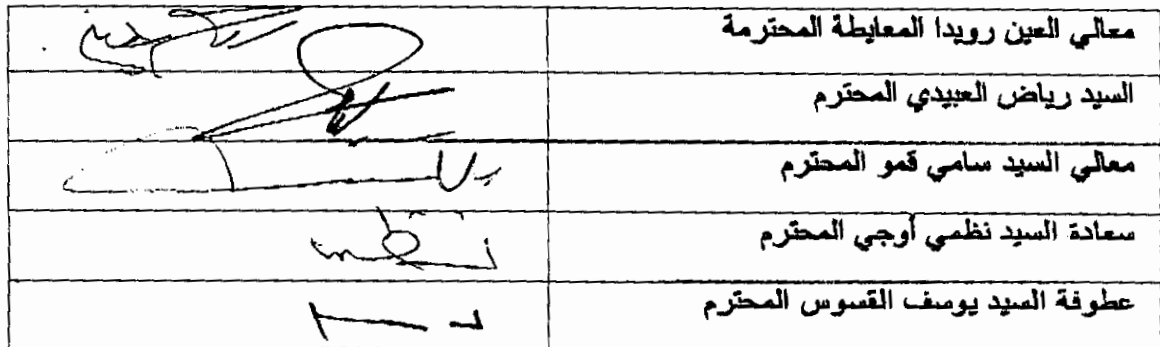 معالي العين رويدا المعايطة المحترمة
السيد رياض العبيدي المحترم
معالي السيد سامي قمو المحترم
سعادة السيد نظمي أوجي المحترم
عطوفة السيد يوسف القسوس المحترم